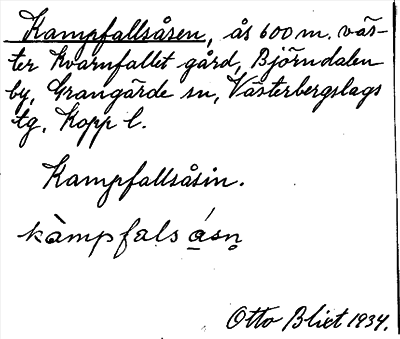 Kampfallsåsen, ås 600 m. väs-
ter Kvarnfallet gård, Björndalen
by, Grangärde sn, Västerbergslags
tg, Kopp l.
Kampfallsåsin.
kàmpfals ásn̥
Otto Blixt 1934.